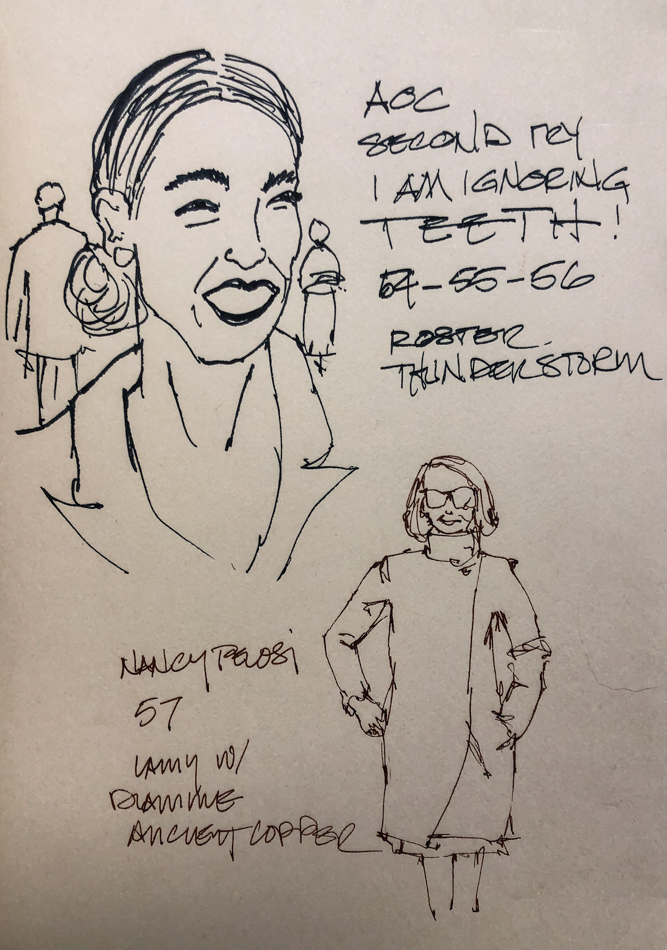 AOC
SECOND TRY
I AM IGNORING
TEETH!
54-55-56
ROSTER
THUNDERSTORM
NANCY PELOSI
57
LAMY W/
DIAMINE
ANCIENT COPPER